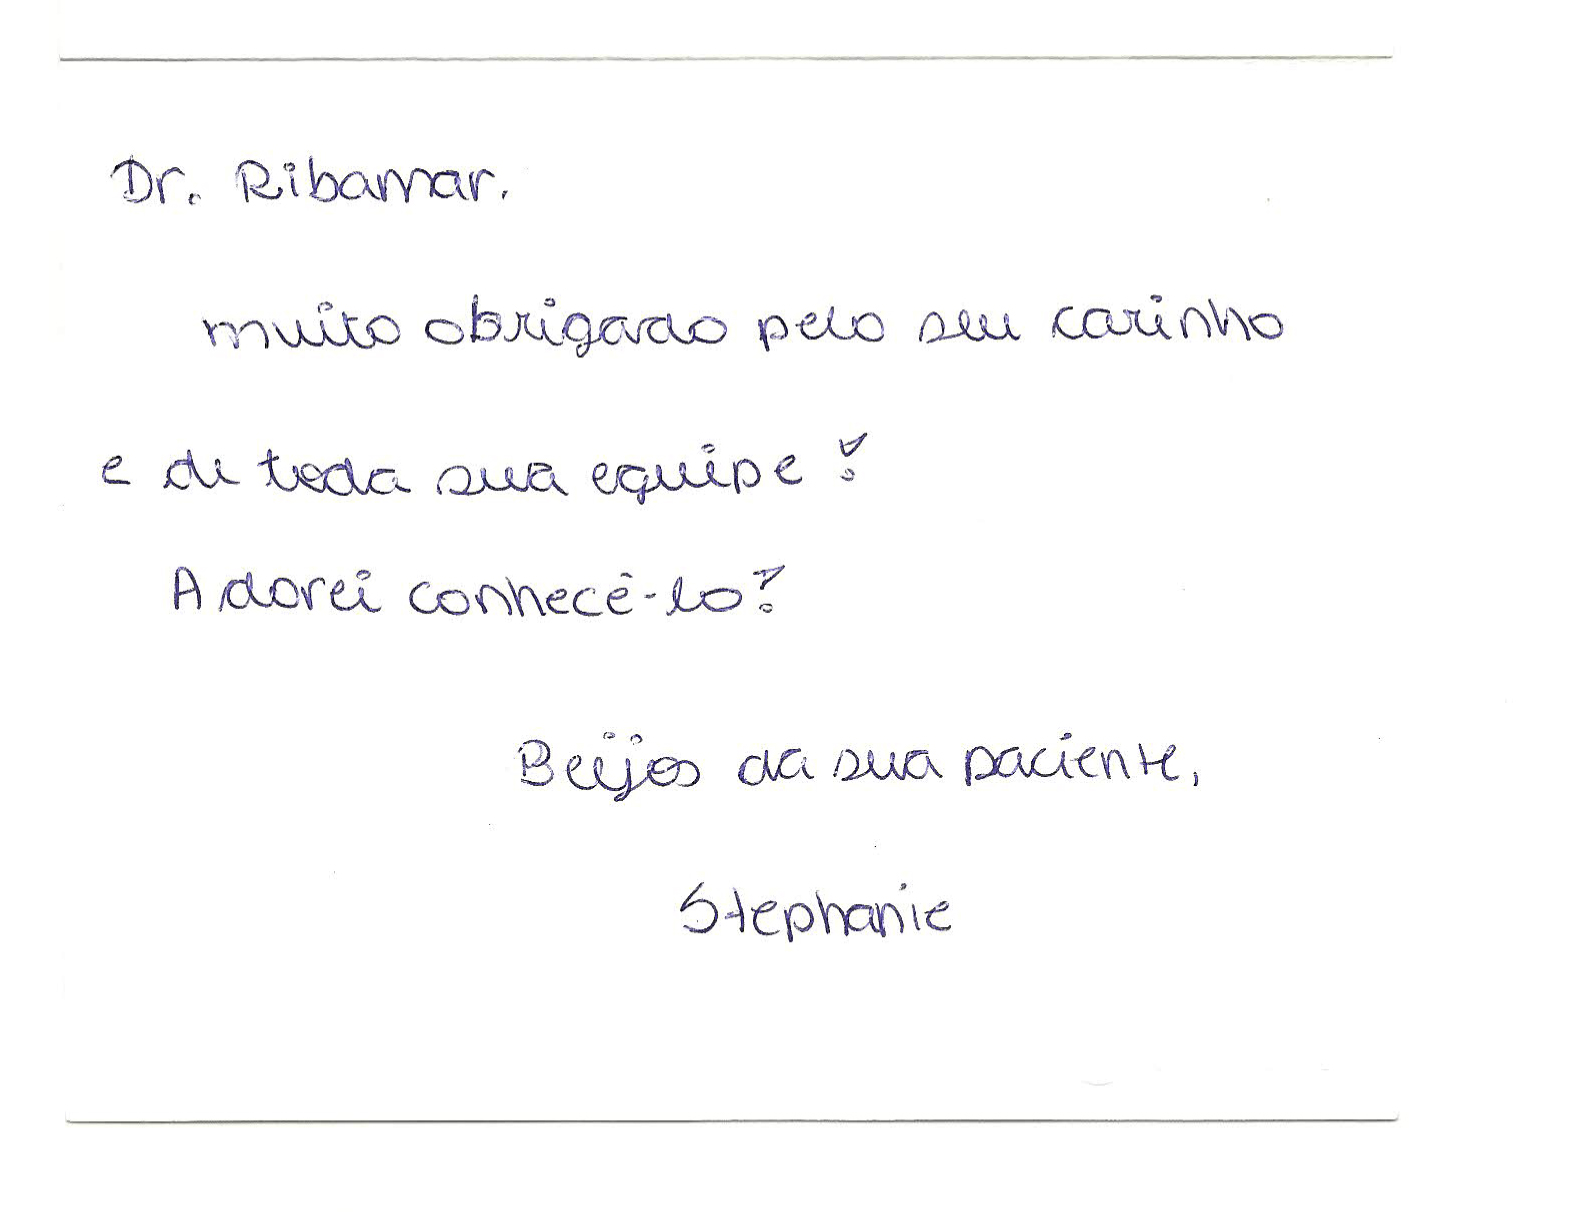 Dr. Ribamar.
muito obrigado pelo seu carinho
e de toda sua equipe!
Adorei conhecê-lo!
Beijos da sua paciente,
Stephanie